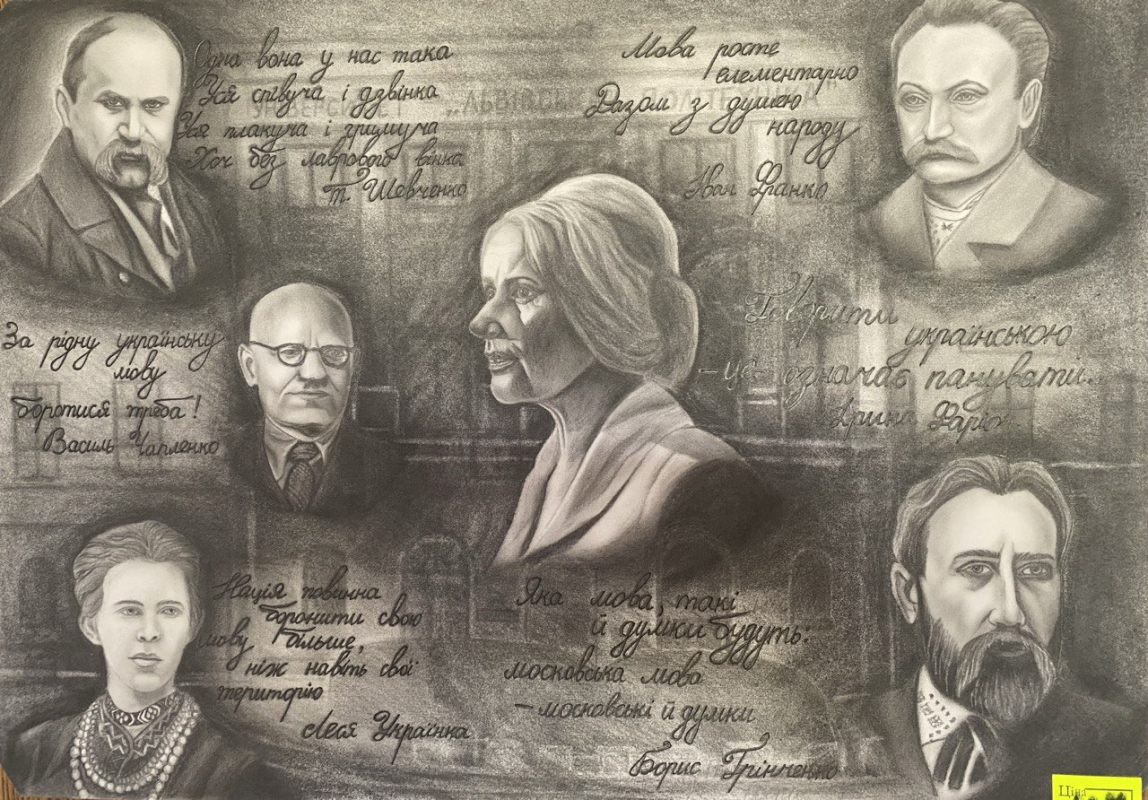 Одна вона у нас така
Уся співуча і дзвінка
Уся плакуча і гримуча
Хоч без лаврового вінка
Т. Шевченко
Мова росте
елементарно
Разом з душею
народу
Іван Франко
За рідну українську
мову
боротися треба!
Василь Чапленко
Говорити
українською
– це означає панувати.
Ірина Фаріон
Нація повинна
боронити свою
мову більше,
ніж навіть свої
територію
Леся Українка
Яка мова, такі
й думки будуть:
московська мова
– московські й думки
Борис Грінченко
Ціна